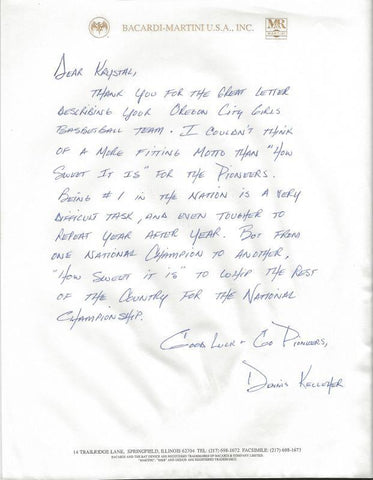 BACARDI-MARTINI U.S.A., INC.
M&R
DEAR KRYSTAL,
THANK YOU FOR THE GREAT LETTER
DESCRIBING YOUR OREGON CITY GIRLS
BASKETBALL TEAM. I COULDN'T THINK
OF A MORE FITTING MOTTO THAN "HOW
SWEET IT IS" FOR THE PIONEERS.
BEING #1 IN THE NATION IS A VERY
DIFFICULT TASK, AND EVEN TOUGHER TO
REPEAT YEAR AFTER YEAR. BUT FROM
ONE NATIONAL CHAMPION TO ANOTHER,
"HOW SWEET IT IS" TO WHIP THE REST
OF THE COUNTRY FOR THE NATIONAL
CHAMPIONSHIP.
GOOD LUCK + GO PIONEERS,
DENNIS KELLEHER
14 TRAILRIDGE LANE, SPRINGFIELD, ILLINOIS 62704 TEL: (217) 698-1672 FACSIMILE: (217) 698-1673
BACARDI AND THE BAT DEVICE ARE REGISTERED TRADEMARKS OF BACARDI & COMPANY LIMITED.